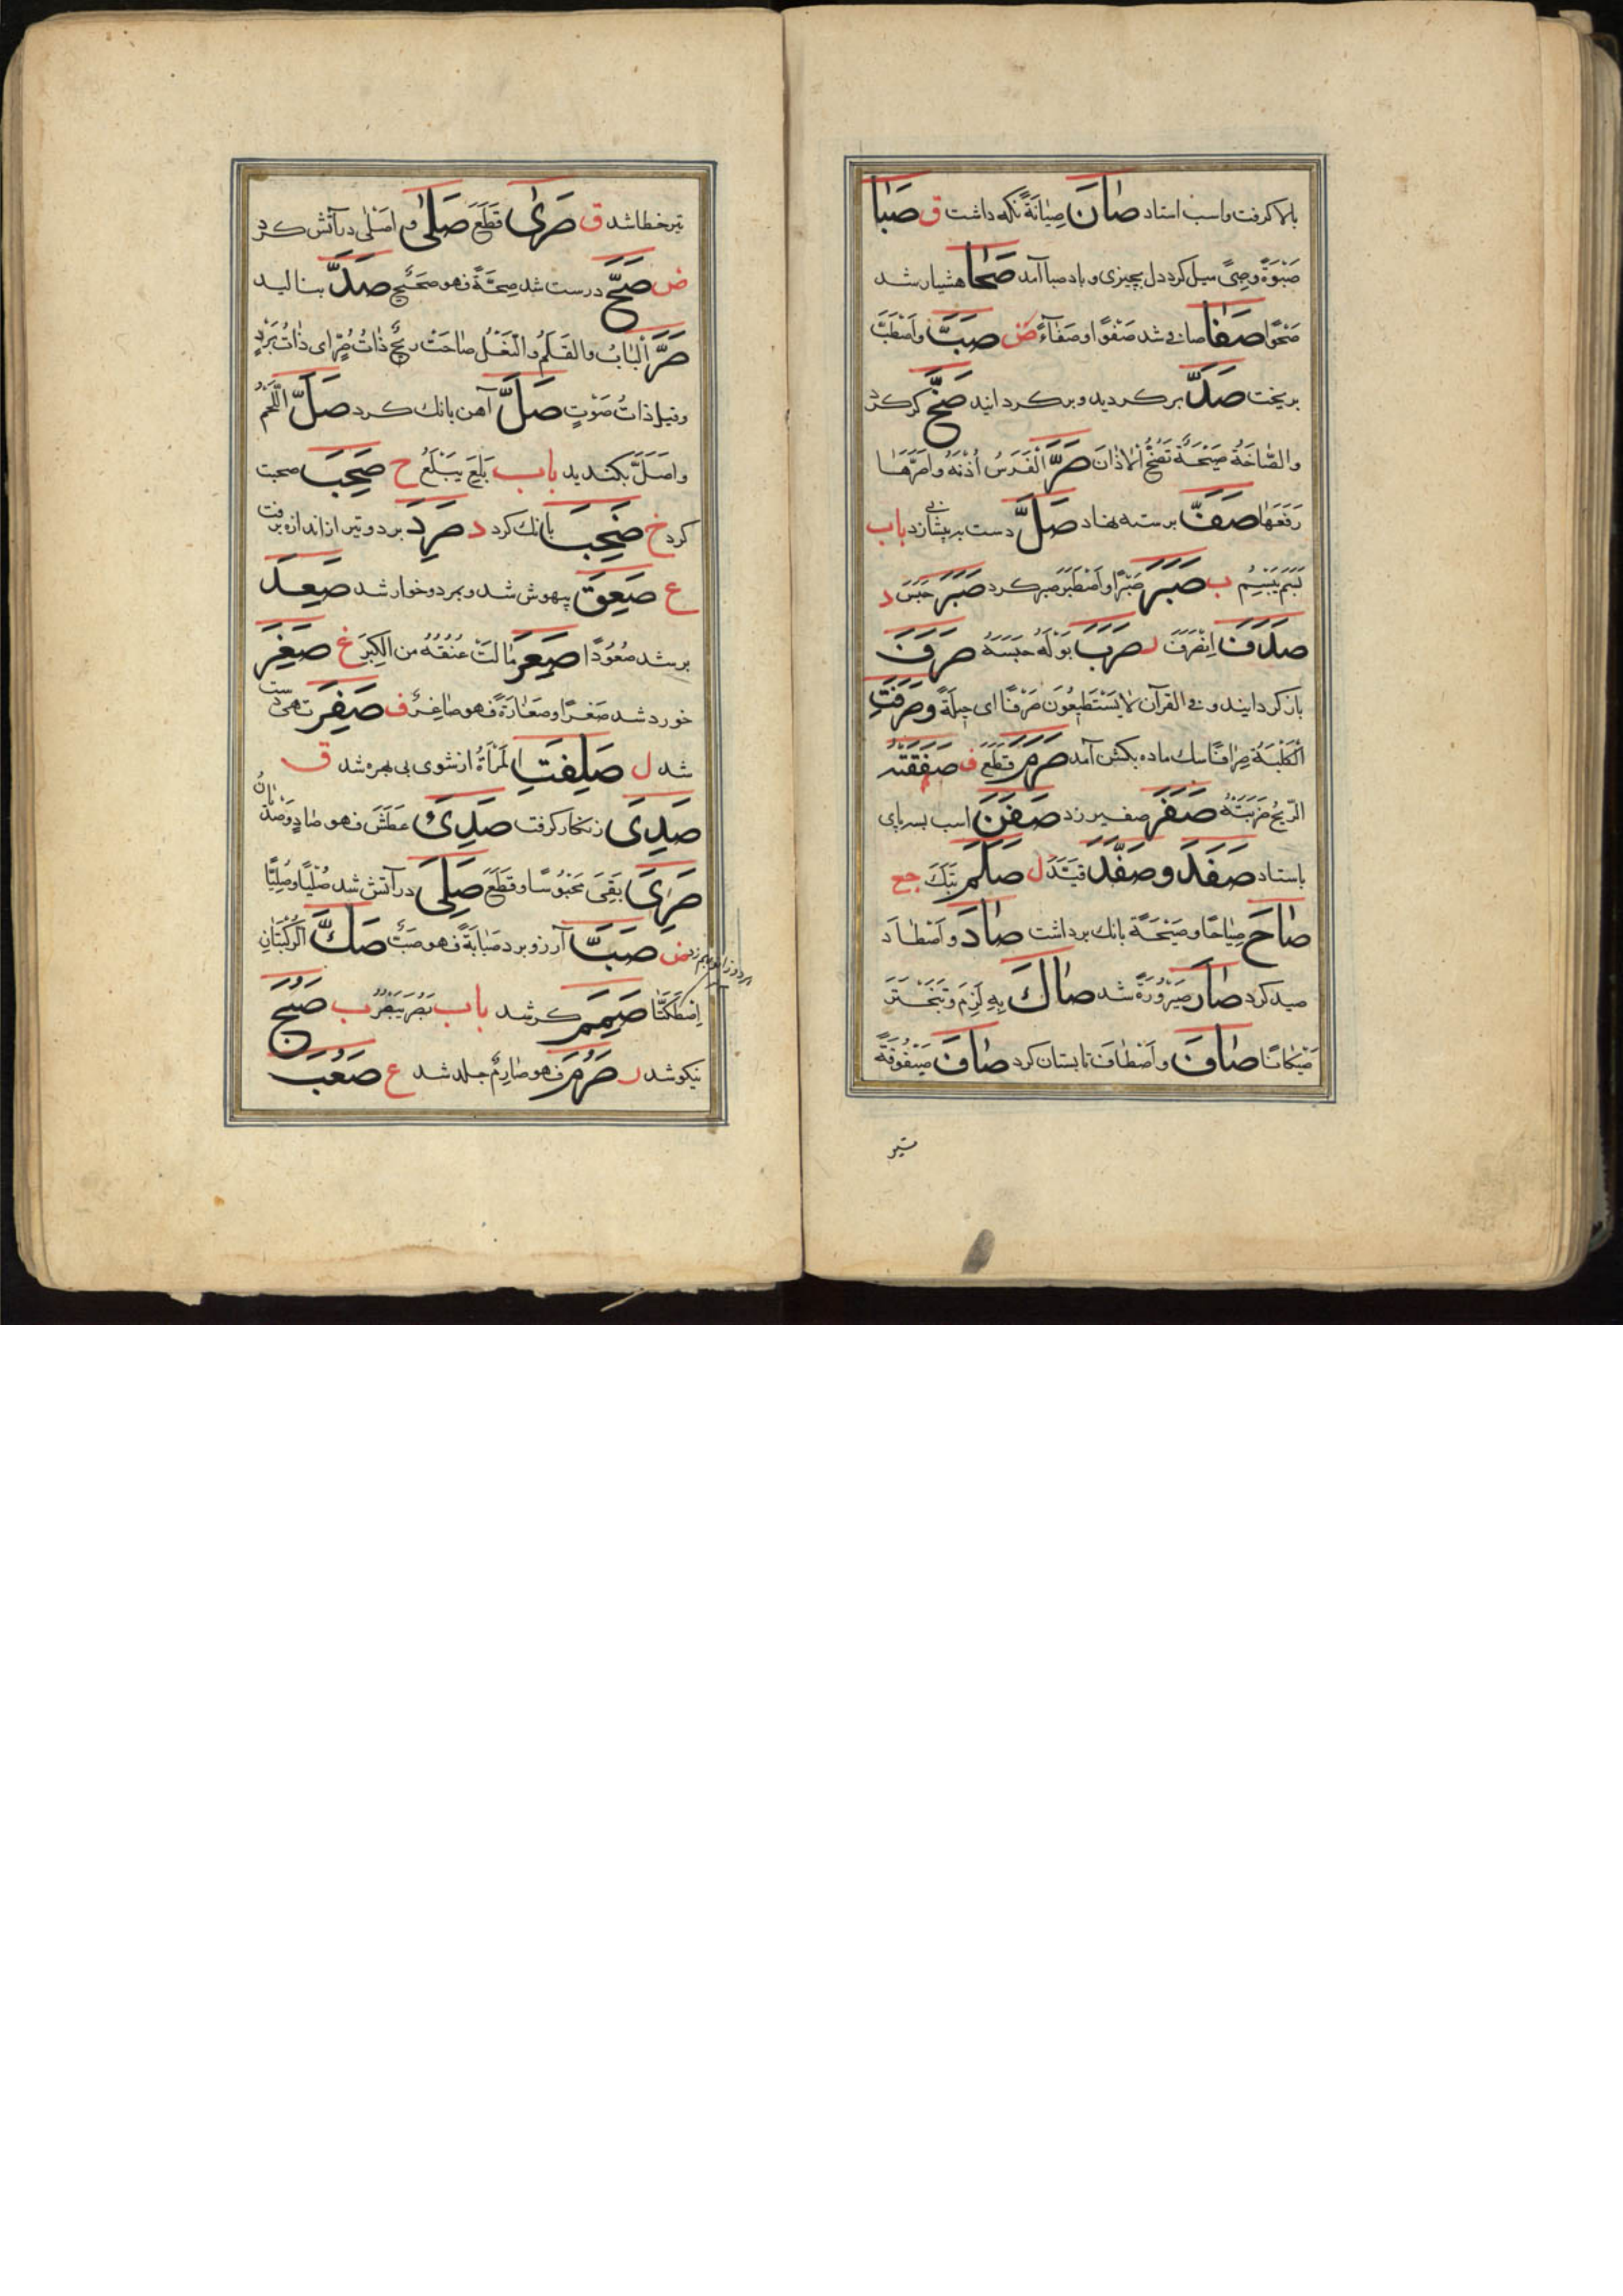 بالا کرفت واسب استاد صَانَ صِيَانَةً نکه داشت ق صَبَا
صَبْوَةً وصِبًى ميل کرد دل بچيزى وباد صبا آمد صَحَا هشيار شد
صَحْوًا صَفَا صافى شد صَفْوًا وصَفَاءً ض صَبَّ واَصْطَبَّ
بريخت صَدَّ برکرديد وبرکردانيد صَخَّ کرکرد
والصَّاخَةُ صَيْحَةٌ تَصُخُّ الْاٰذَانَ صَرَّ الْفَرَسُ اُذُنَهُ واَصَرَّهَا
رَفَعَهَا صَفَّ برسته نهاد صَلَّ دست بريشانى زد باب
بَسَمَ يَبْسِمُ ب صَبَرَ صَبْرًا واَصْطَبَرَ صبر کرد صَبَرَ حَبَسَ د
صَدَفَ اِنْصَرَفَ ر صَرَبَ بَوْلَهُ حَبَسَهُ صَرَفَ
بازکردانيد وفى القرآن لا يَسْتَطِيعُونَ صَرْفًا اى حِيلَةً وصَرَفَتِ
الْكَلْبَةُ صِرَافًا سک ماده بکشن آمد صَرَمَ قَطَعَ ف صَفَقَتْهُ
الرّيحُ ضَرَبَتْهُ صَفَرَ صفير زد صَفَنَ اسب بسه پاى
باستاد صَفَدَ وصَفَّدَ قَيَّدَ ل صَلَمَ بَتَكَ جع
صَاحَ صِيَاحًا وصَيْحَةً بانک برداشت صَادَ واَصْطَادَ
صيد کرد صَارَ صَيْرُورَةً شد صَاكَ بِهِ لَزِمَ وتَبَخْتَرَ
صَيَكَانًا صَافَ واَصْطَافَ تابستان کرد صَافَ صَيْفُوفَةً
تير
تير خطا شد ق صَرٰى قَطَعَ صَلٰى واَصْلٰى در آتش کرد
ض صَحَّ درست شد صِحَّةً فهو صَحِيحٌ صَدَّ بناليد
صَرَّ الْبَابُ والقَلَمُ والنَّعْلُ صَاحَتْ رِيحٌ ذَاتُ صِرٍّ اى ذَاتُ بَرْدٍ
وقيل ذَاتُ صَوْتٍ صَلَّ آهن بانک کرد صَلَّ اللَّحْمُ
واَصَلَّ بکنديد باب بَلِعَ يَبْلَعُ ح صَحِبَ صحبت
کرد خ صَخِبَ بانک کرد د صَرِدَ برد وتير از اندازه برفت
ع صَعِقَ بيهوش شد وبمرد وخوار شد صَعِدَ
برشد صُعُودًا صَعِرَ مَالَتْ عُنُقُهُ من الكِبَرِ غ صَغِرَ
خورد شد صَغَرًا وصَغَارَةً فهو صَاغِرٌ ف صَفِرَ تهى دست
شد ل صَلِفَتِ الْمَرْأَةُ از شوى بى بهره شد ق
صَدِىَ زنکار کرفت صَدِىَ عَطَشَ فهو صَادٍ وَصَدْيَانُ
صَرِىَ بَقِىَ مَحْبُوسًا وقَطَعَ صَلِىَ در آتش شد صُلْيًا وصِلِيًّا
ض صَبَّ آرزو برد صَبَابَةً فهو صَبٌّ صَكَّ الرُّكْبَتَانِ
اِصْطَكَّتَا صَمِمَ کر شد باب بَصُرَ يَبْصُرُ ب صَبُحَ
نيکو شد ر صَرُمَ فهو صَارِمٌ جلد شد ع صَعُبَ